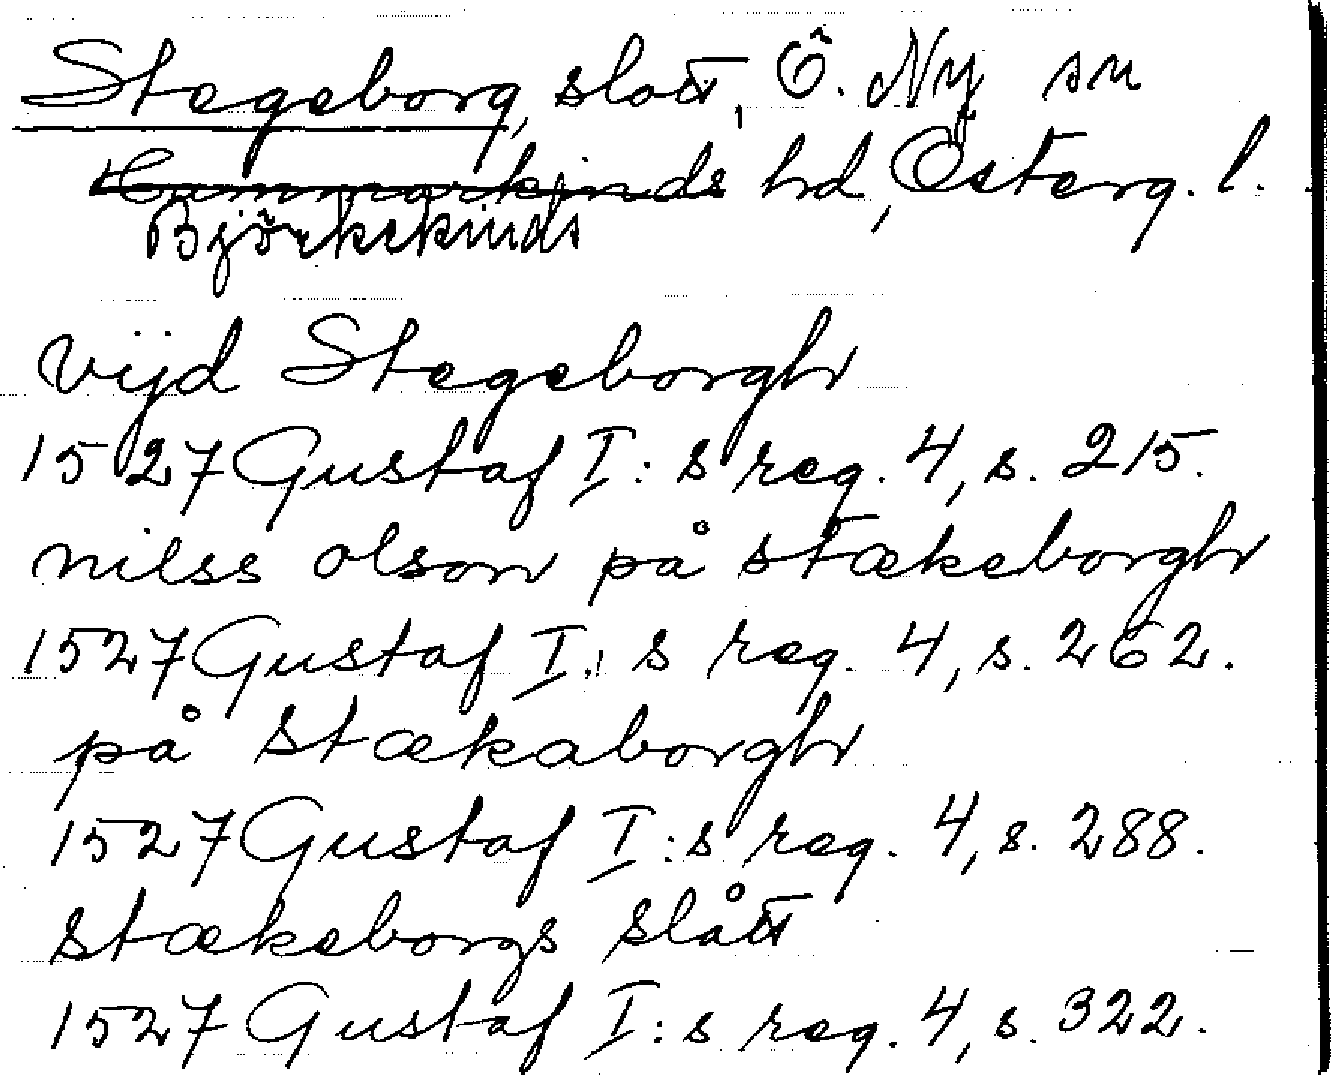 Stegeborg, slott, Ö. Ny sn
Hammarkinds hd, Österg. l.
Björkekinds
vijd Stegeborgh
1527 Gustaf I:s reg. 4, s. 215.
nilss olson på stækeborgh
1527 Gustaf I:s reg. 4, s. 262.
på stækaborgh
1527 Gustaf I:s reg. 4, s. 288.
stækeborgs slått
1527 Gustaf I:s reg. 4, s. 322.